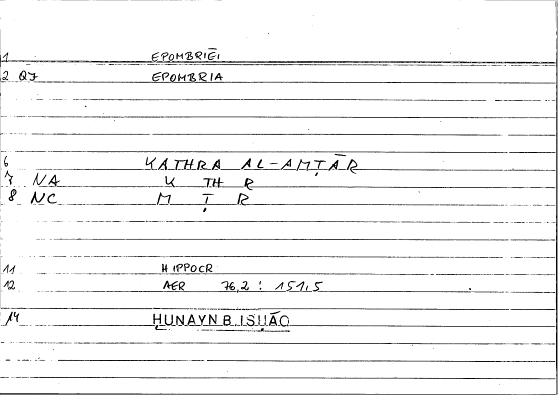 1 EPOMBRIĒI
2 QJ EPOMBRIA
6 KATHRA AL-AMṬĀR
7 NA K TH R
8 NC M Ṭ R
11 HIPPOCR
12 AER 76,2 : 151,5
14 ḤUNAYN B. ISḤĀQ